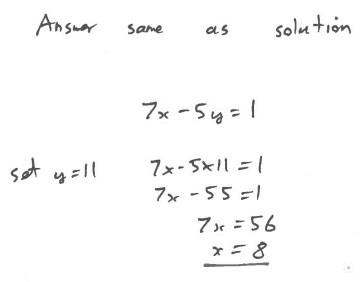 Answer same as solution
7x - 5y = 1
set y = 11 7x - 5x11 = 1
7x - 55 = 1
7x = 56
x = 8